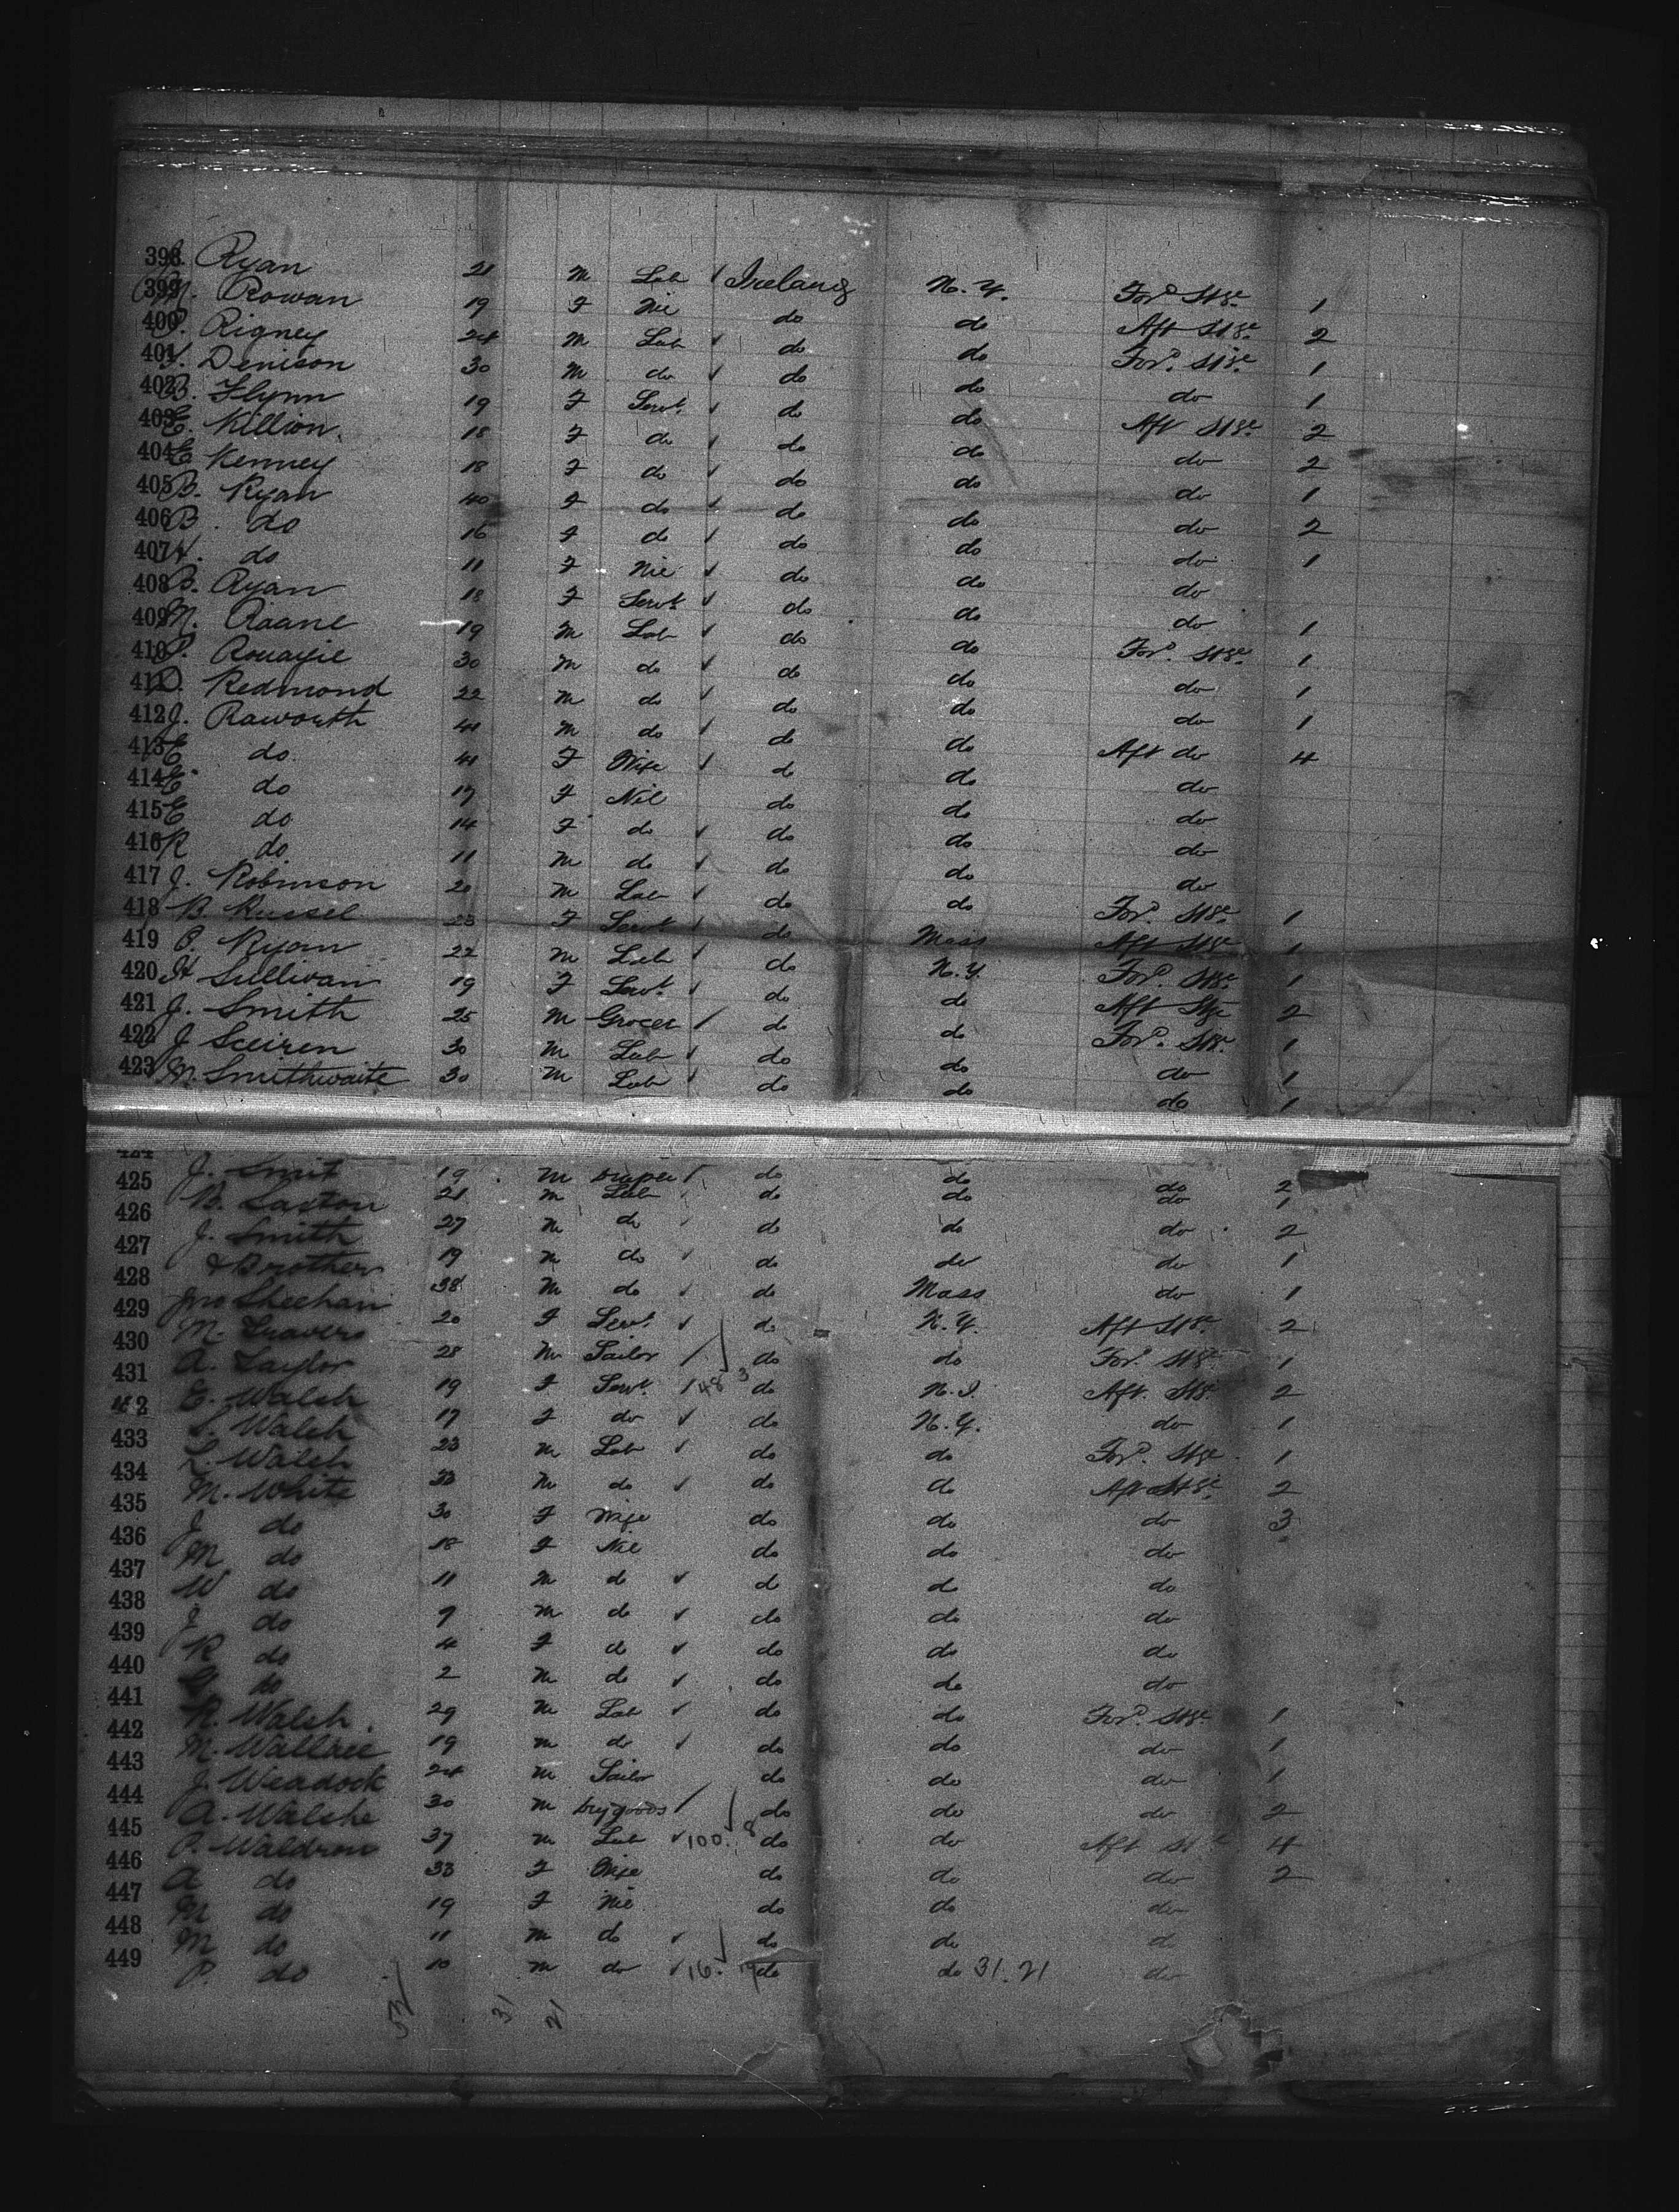 398 J. Ryan 21 M Lab ✓ Ireland N.Y. For'd Stge 1
399 M. Rowan 19 F Nil do do Aft Stge 2
400 P. Rigney 24 M Lab ✓ do do For'd. Stge 1
401 Denison 30 M do ✓ do do do 1
402 B. Flynn 19 F Servt. ✓ do do Aft Stge 2
403 E. Killion. 18 F do ✓ do do do 2
404 E Kenney 18 F do ✓ do do do 1
405 B. Ryan 40 F do ✓ do do do 2
406 B. do 16 F do ✓ do do do 1
407 do 11 F Nil ✓ do do do
408 B. Ryan 18 F Servt ✓ do do do 1
409 M. Roane 19 M Lab ✓ do do For'd. Stge 1
410 P. 30 M do ✓ do do do 1
411 D. Redmond 22 M do ✓ do do do 1
412 J. Raworth 41 M do ✓ do do Aft do 4
413 E do 41 F Wife ✓ do do do
414 E do 17 F Nil do do do
415 E do 14 F do ✓ do do do
416 R do 11 M do ✓ do do do
417 J. Robinson 20 M Lab ✓ do do For'd. Stge 1
418 B. Russel 23 F Servt ✓ do Mass Aft Stge 1
419 P. Ryan 22 M Lab ✓ do N.Y. For'd. Stge 1
420 H Sullivan 19 F Servt. ✓ do do Aft Stge 2
421 J. Smith 25 M Grocer ✓ do do For'd. Stge 1
422 J 30 M Lab ✓ do do do 1
423 M. Smithwaite 30 M Lab ✓ do do do 1
424 J. Smit 19 M Draper ✓ do do do 2
425 B. Saxton 21 M Lab do do do 1
426 J. Smith 27 M do do do do 2
427 & Brother 19 M do ✓ do do do 1
428 Jno Sheehan 38 M do ✓ do Mass do 1
429 M. Travers 20 F Servt. ✓ do N.Y. Aft Stge 2
430 A. Taylor 28 M Sailor ✓ do do For'd. Stge 1
431 E. Walsh 19 F Servt. ✓ 48 3 do N.J. Aft. Stge 2
432 S. Walsh 17 F do ✓ do N.Y. do 1
433 L. Walsh 23 M Lab ✓ do do For'd. Stge 1
434 M. White 33 M do ✓ do do Aft Stge 2
435 J do 30 F Wife do do do 3
436 M do 18 F Nil do do do
437 W do 11 M do ✓ do do do
438 J do 7 M do ✓ do do do
439 R do 4 F do ✓ do do do
440 G do 2 M do ✓ do do do
441 R. Walsh. 29 M Lab ✓ do do For'd. Stge 1
442 M. Wallace 19 M do ✓ do do do 1
443 J. Weadock 24 M Sailor do do do 1
444 A. Walshe 30 M Drygoods ✓ do do do 2
445 P. Waldron 37 M Lab ✓ 100. 8 do do Aft Stge 4
446 A do 33 F Wife do do do 2
447 M do 19 F Nil do do do
448 M do 11 M do ✓ do do do
449 P. do 10 M do ✓ 16. do do 31.21 do
31 21